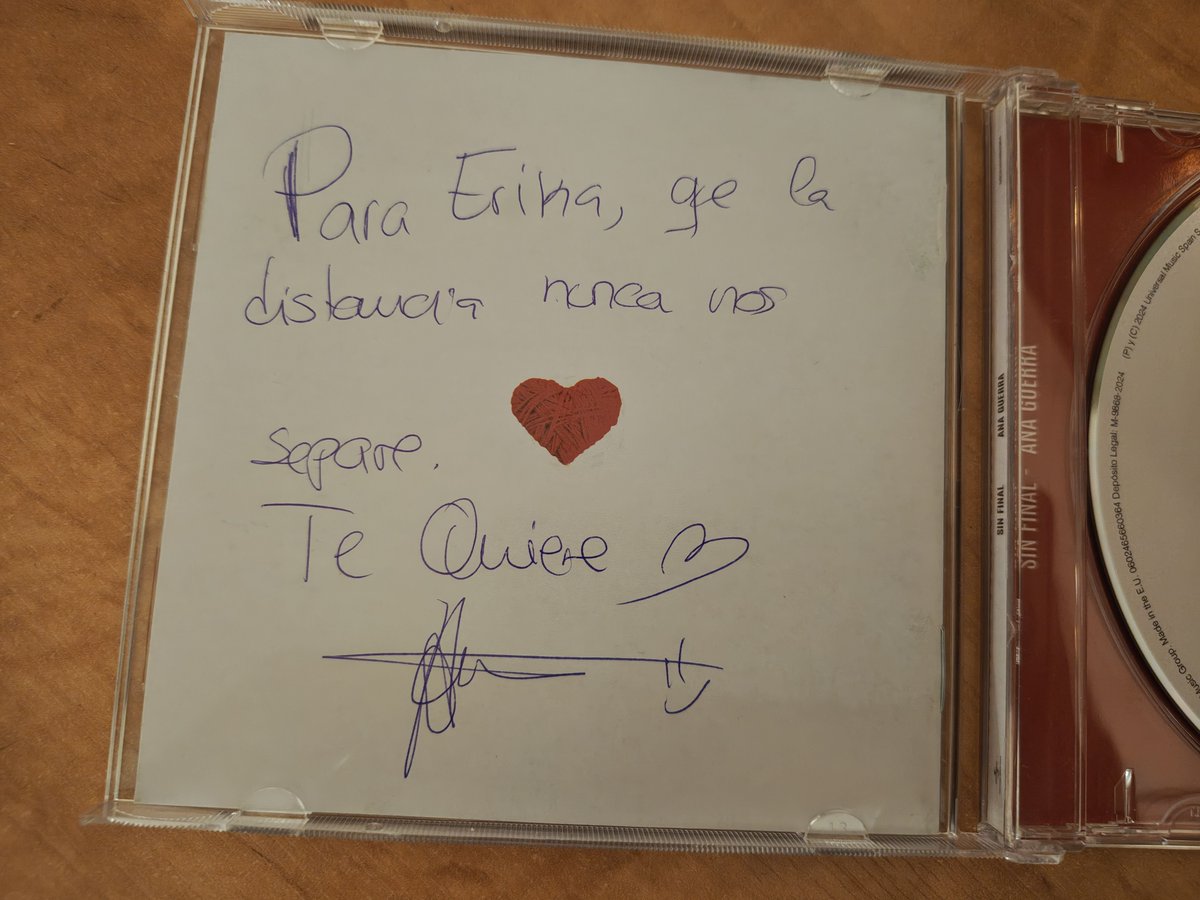 Para Erika, qe la
distancia nunca nos
separe.
Te Quiere
SIN FINAL ANA GUERRA
SIN FINAL - ANA GUERRA
(P) y (C) 2024 Universal Music Spain S
Music Group. Made in the E.U. 0602465660364 Depósito Legal: M-9868-2024